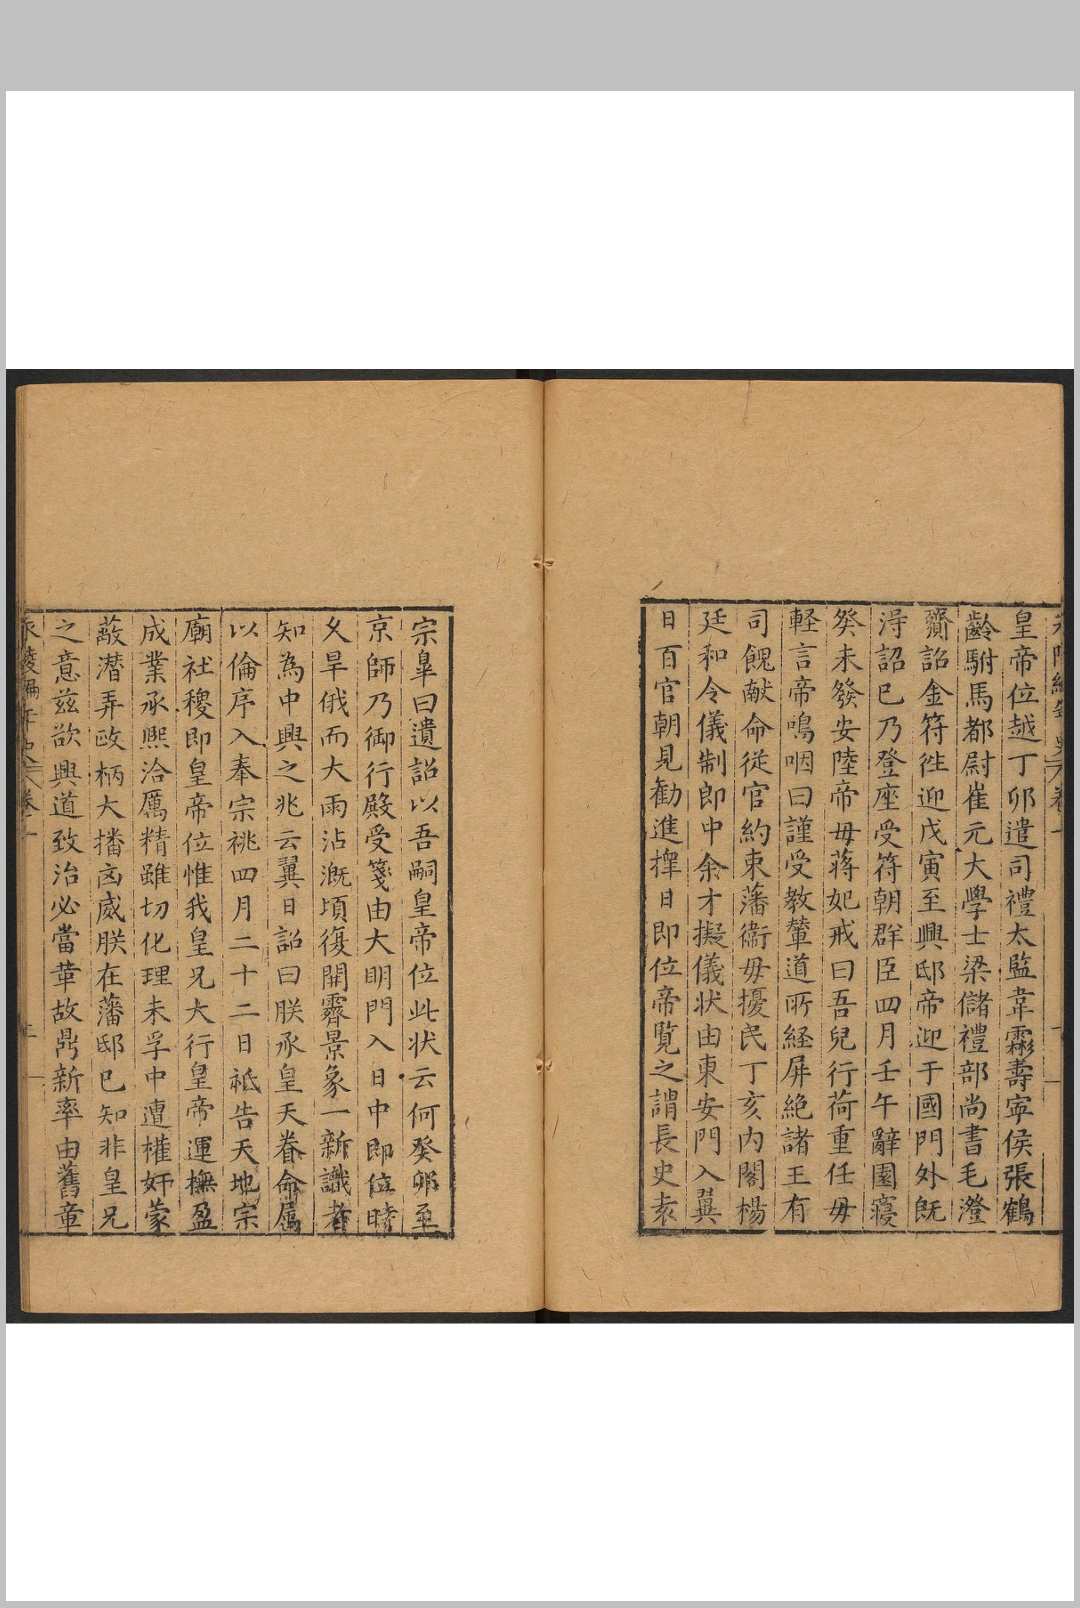 皇帝位越丁卯遣司禮太監韋霦壽寜侯張鶴
齡駙馬都尉崔元大學士梁儲禮部尚書毛澄
齎詔金符徃迎戊寅至興邸帝迎于國門外旣
淂詔已乃登座受符朝群臣四月壬午辭園寢
癸未發安陸帝母蔣妃戒曰吾兒行荷重任毋
軽言帝嗚咽曰謹受教輦道所経屏絶諸王有
司餽献命従官約束藩衛毋擾民丁亥内閣楊
廷和令儀制郎中余才擬儀状由東安門入翼
日百官朝見勸進擇日即位帝覧之謂長史袁
宗臯曰遺詔以吾嗣皇帝位此状云何癸卯至
京師乃御行殿受箋由大明門入日中即位時
久旱俄而大雨沾溉頃復開霽景象一新識者
知為中興之兆云翼日詔曰朕承皇天眷命属
以倫序入奉宗祧四月二十二日祗告天地宗
廟社稷即皇帝位惟我皇兄大行皇帝運撫盈
成業承熙洽厲精雖切化理未孚中遭權奸蒙
蔽潜弄政柄大播凶威朕在藩邸已知非皇兄
之意兹欲興道致治必當革故鼎新率由舊章
永陵編年史 卷一